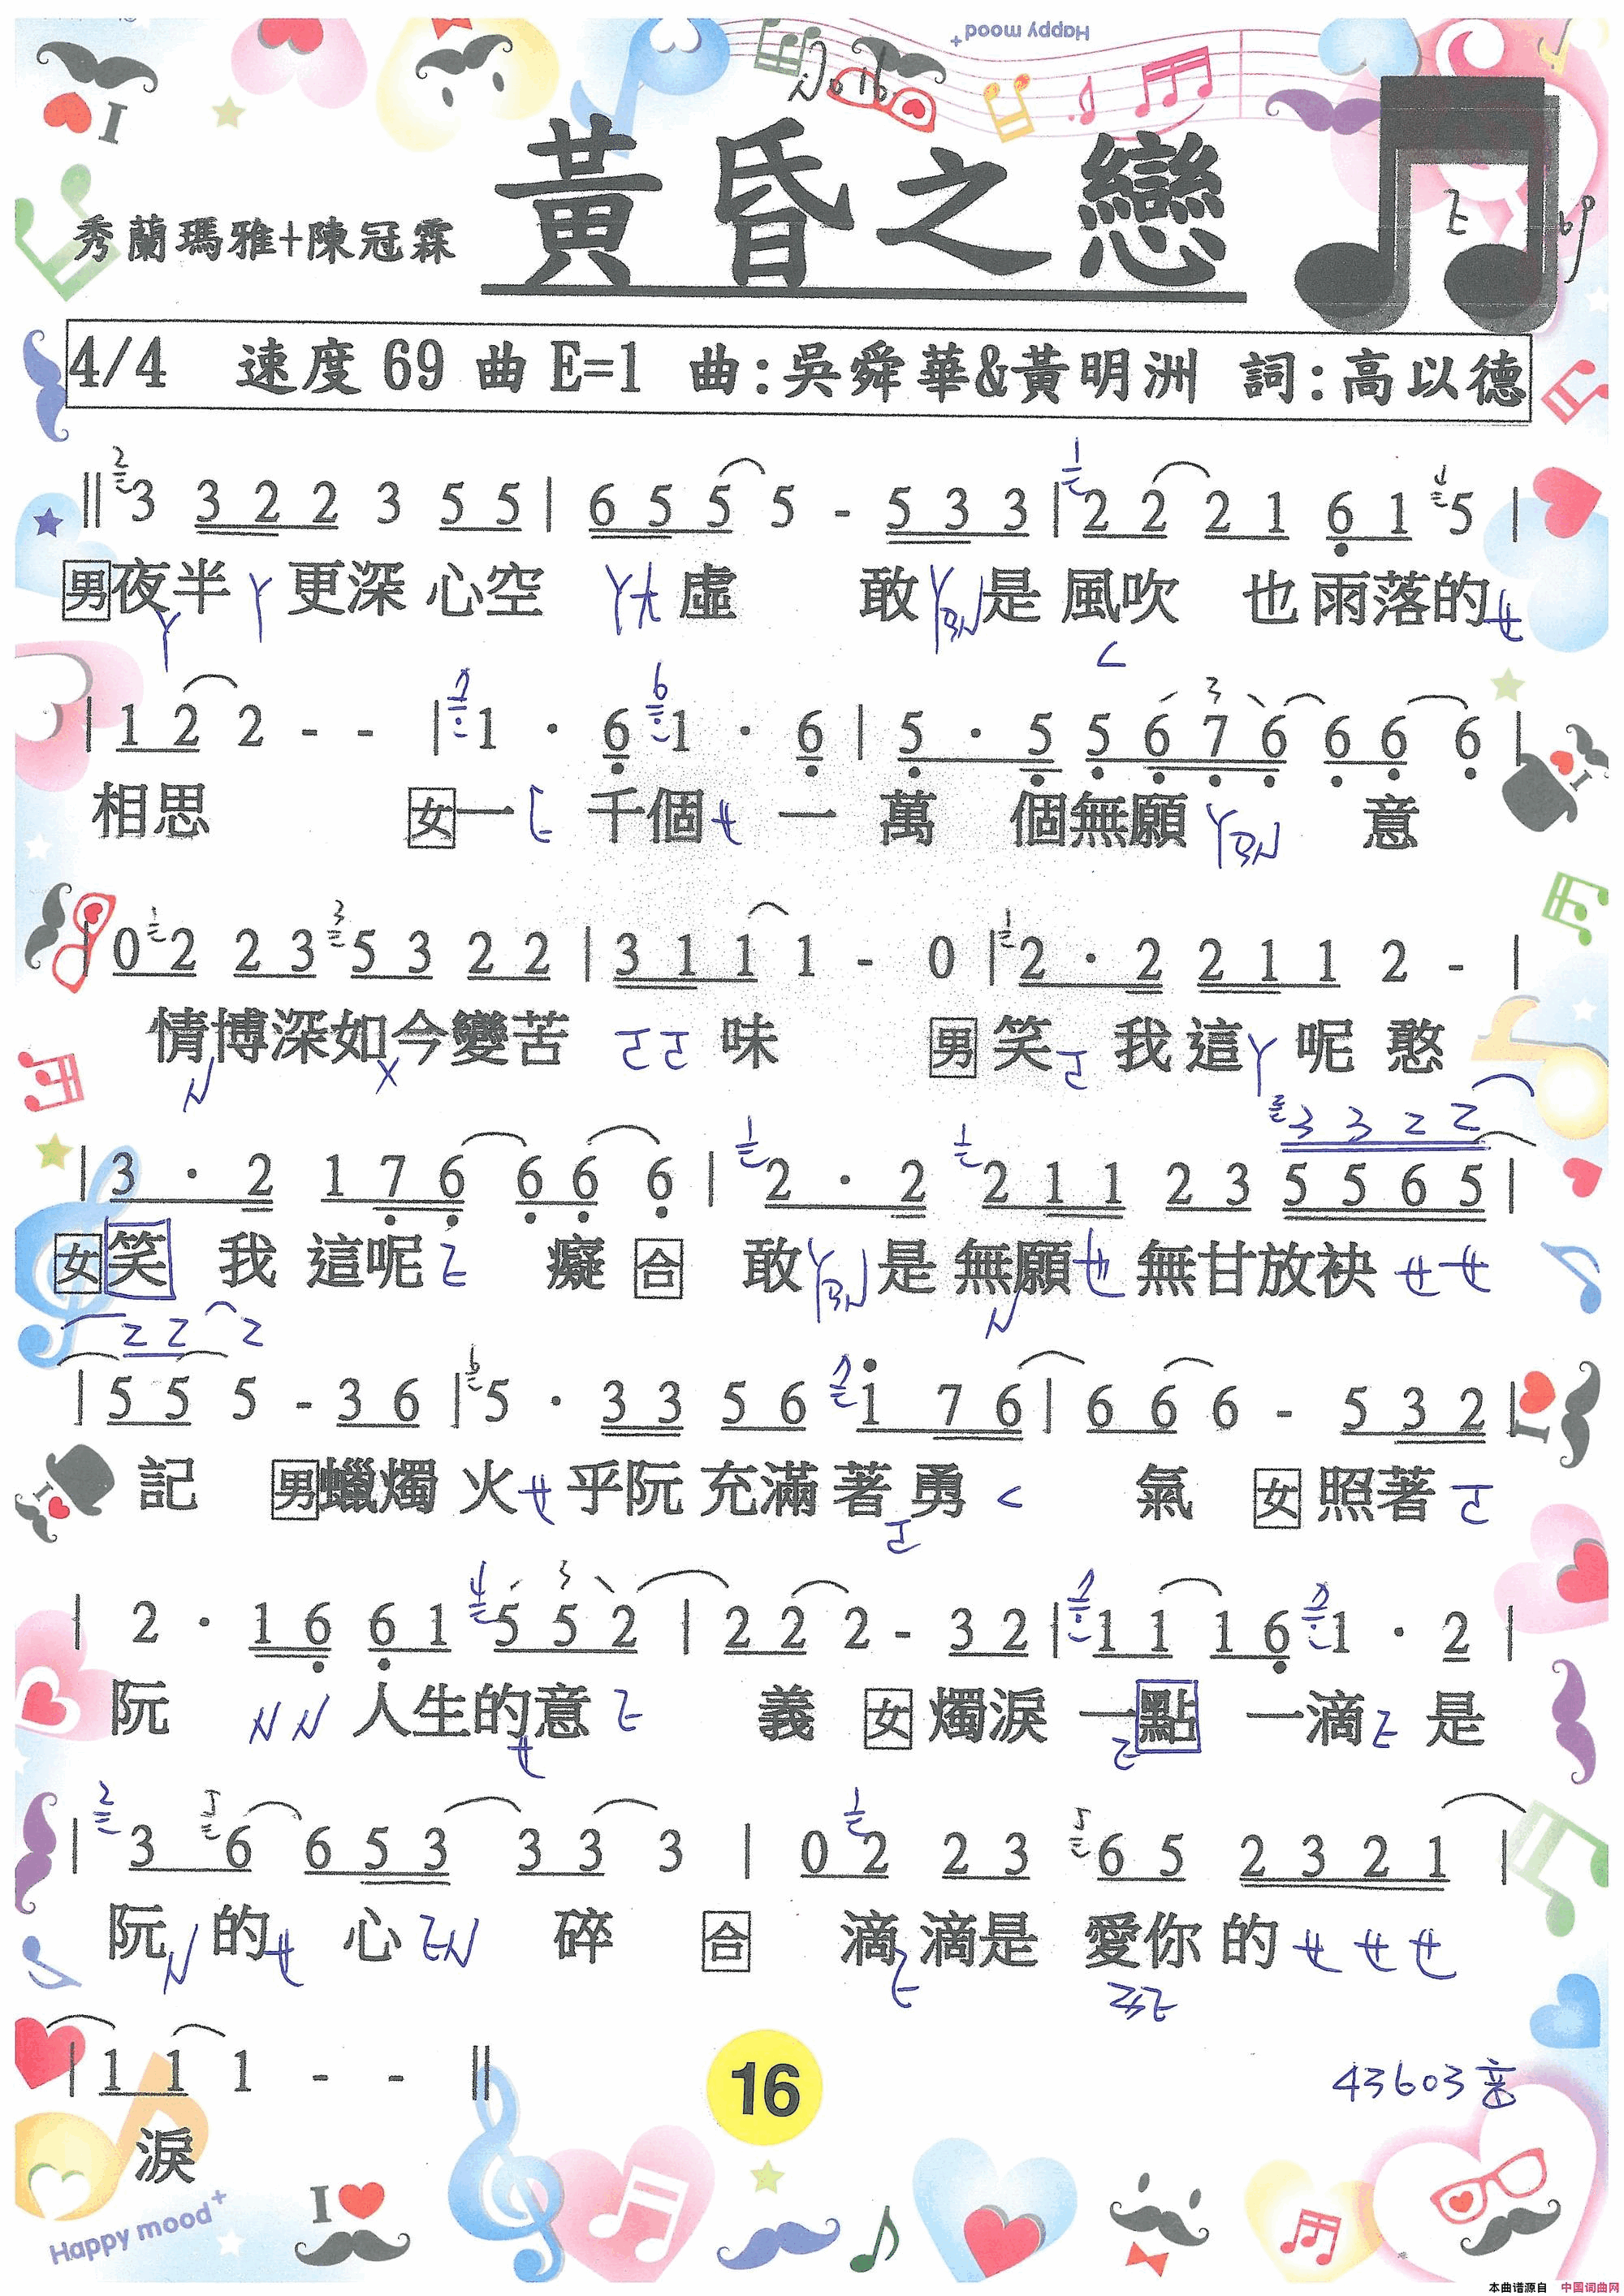 Happy mood+
I
No 16
黃昏之戀
秀蘭瑪雅+陳冠霖
4/4 速度 69 曲 E=1 曲:吳舜華&黃明洲 詞:高以德
‖ 3 3 2 2 3 5 5 | 6 5 5 5 - 5 3 3 | 2 2 2 1 6 1 5 |
男 夜半ㄚ更深心空 ㄚㄤ 虛 敢 是風吹 也雨落的ㄝ
| 1 2 2 - - | 1 · 6 1 · 6 | 5 · 5 5 6 7 6 6 6 6 |
相思 女 一ㄛ千個ㄝ一 萬 個無願 意
0 2 2 3 5 3 2 2 | 3 1 1 1 - 0 | 2 · 2 2 1 1 2 - |
情博深如今變苦 ㄛㄛ 味 男 笑ㄛ我這ㄚ呢憨
3 3 2 2
| 3 · 2 1 7 6 6 6 6 | 2 · 2 2 1 1 2 3 5 5 6 5 |
女 笑 我 這呢 癡 合 敢 是無願 無甘放袂ㄝㄝ
2 2 2
| 5 5 5 - 3 6 | 5 · 3 3 5 6 1 7 6 | 6 6 6 - 5 3 2 |
記 男 蠟燭火ㄝ乎阮充滿著勇 氣 女 照著ㄛ
| 2 · 1 6 6 1 5 5 2 | 2 2 2 - 3 2 | 1 1 1 6 1 · 2 |
阮 人生的意 義 女 燭淚一點 一滴 是
| 3 6 6 5 3 3 3 3 | 0 2 2 3 6 5 2 3 2 1 |
阮 的ㄝ心 碎 合 滴滴是愛你的ㄝㄝㄝ
| 1 1 1 - - ‖
淚
16
43603
Happy mood+
I
本曲谱源自 中国词曲网